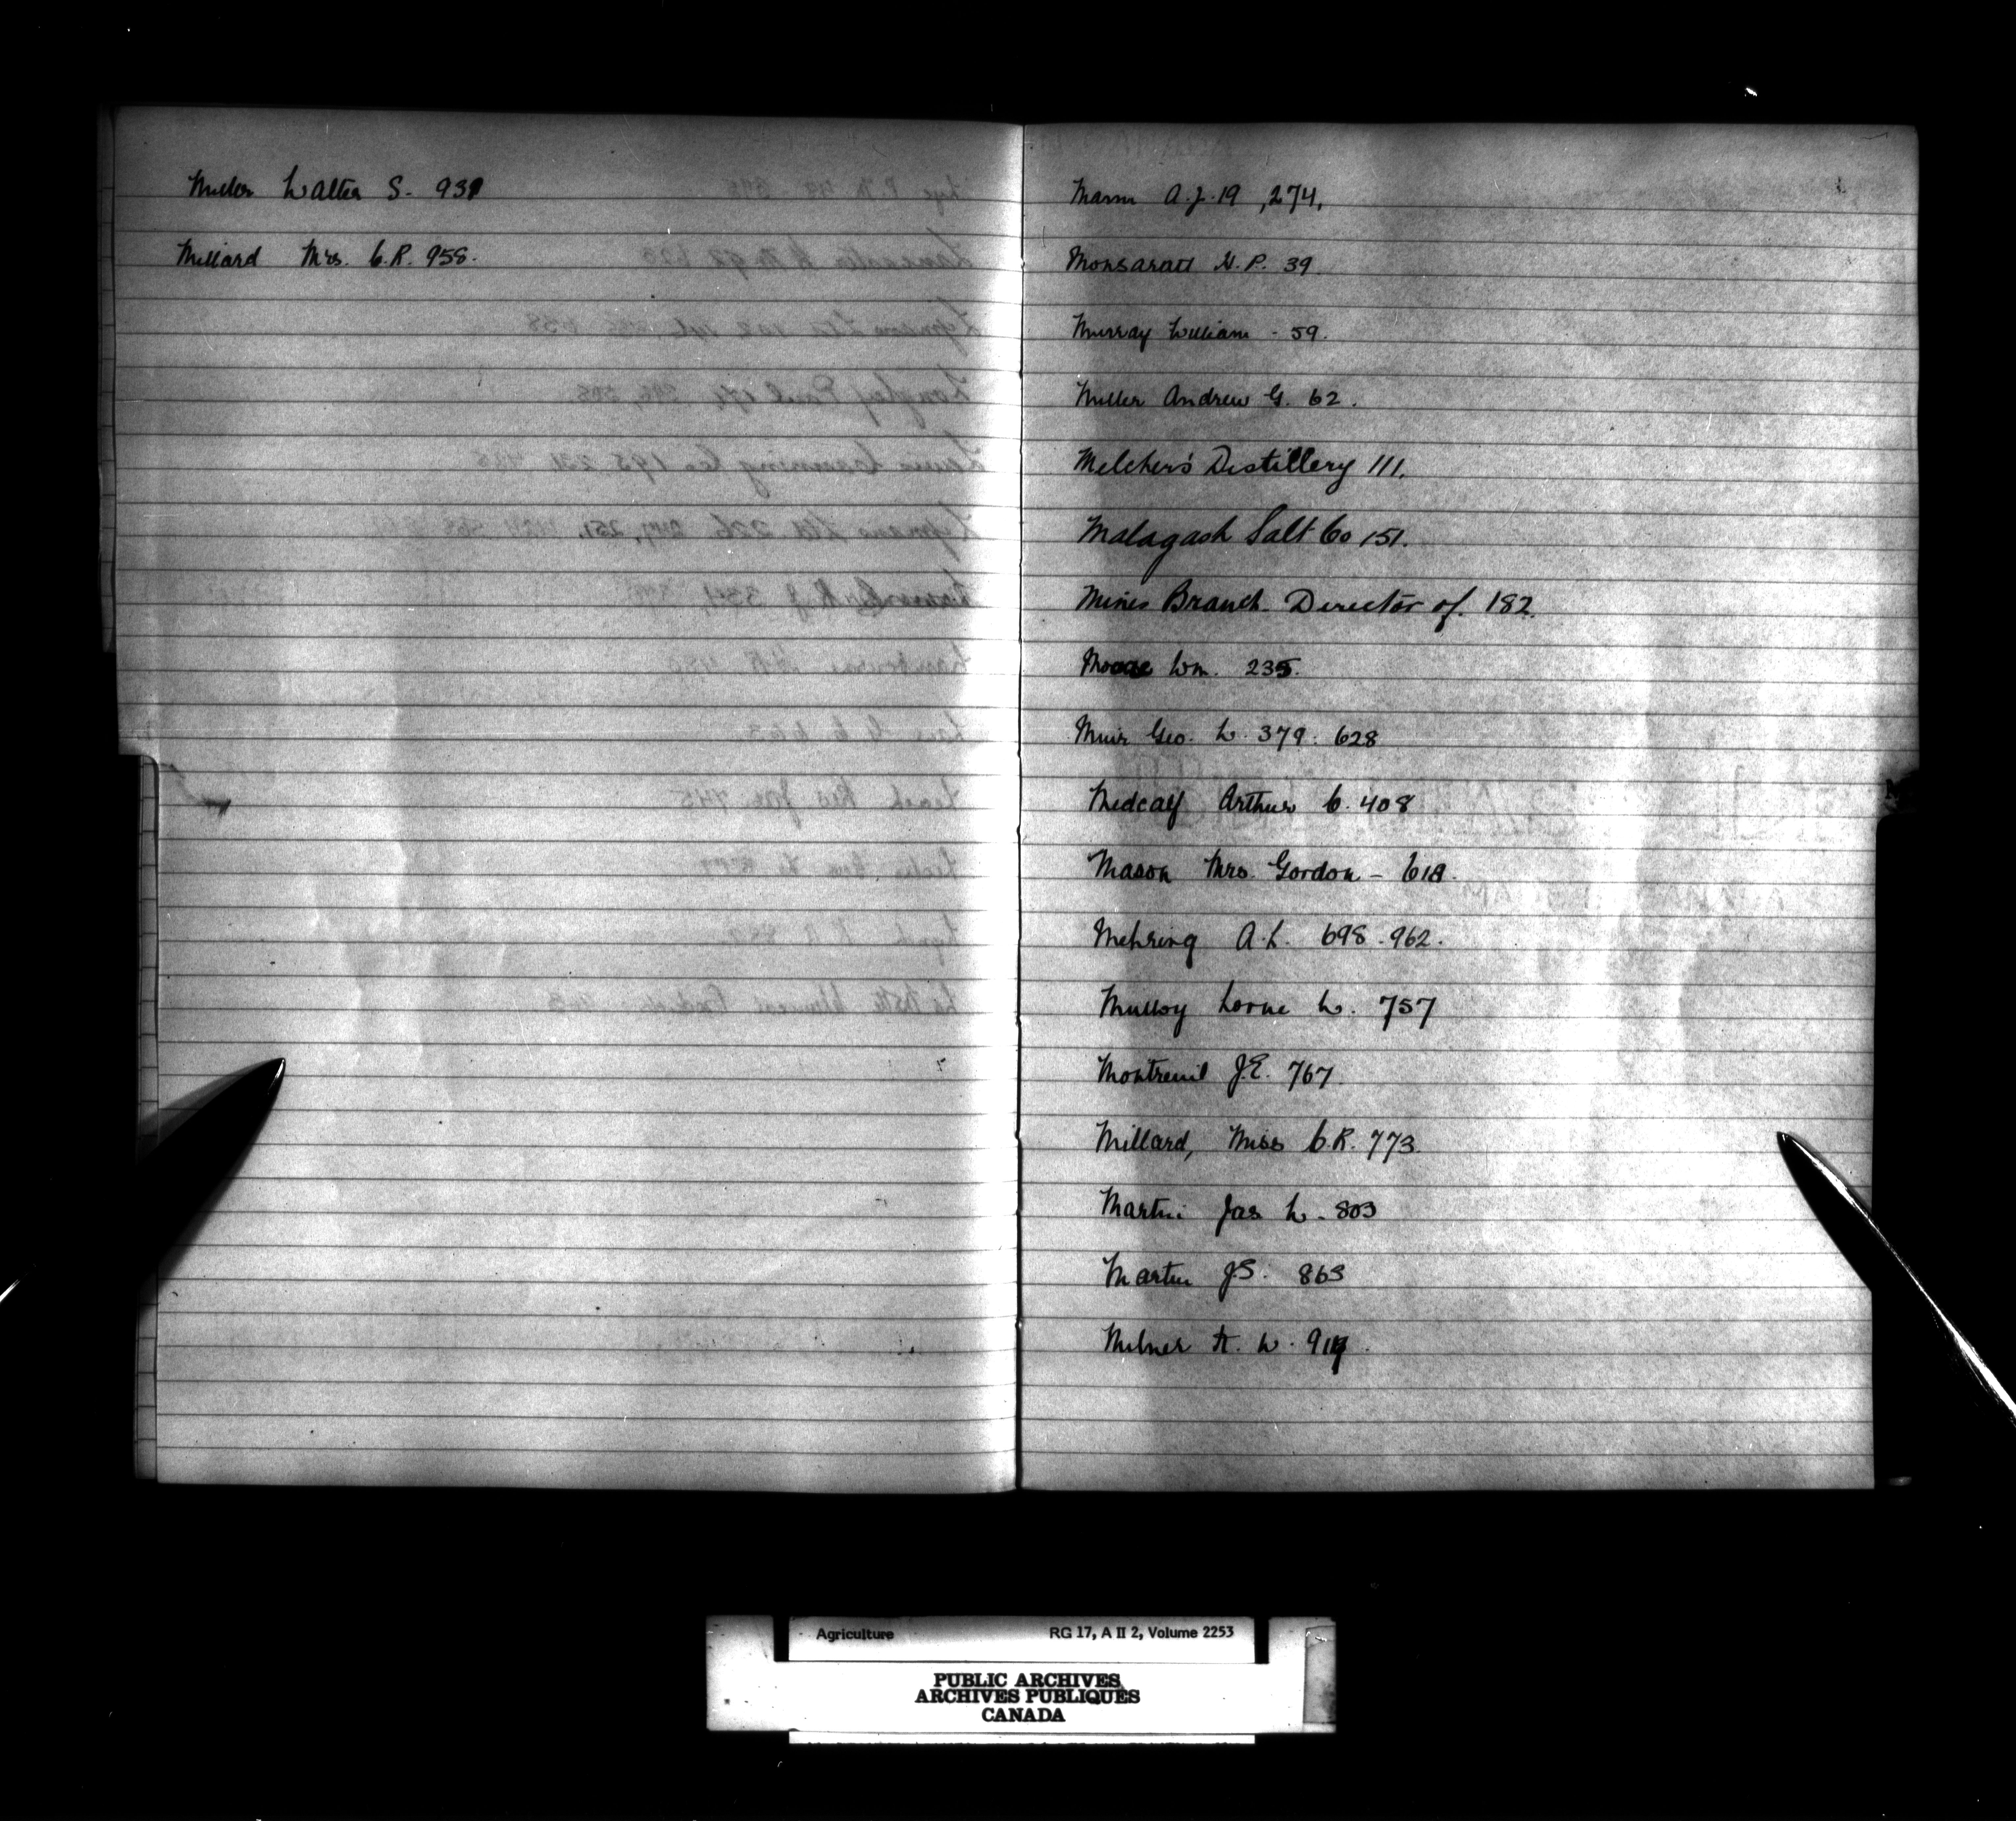 Miller Walter S. 931
Millard Mrs. C.R. 958.
Mann A.J. 19, 274,
Monsaratt N.P. 39
Murray William - 59.
Miller Andrew G. 62.
Melchers' Distillery 111.
Malagash Salt Co 151.
Mines Branch. Director of. 182.
Moore Wm. 235.
Muir Geo. W. 379. 628
Medcalf Arthur C. 408
Mason Mrs. Gordon - 618.
Mehring A.L. 698. 962.
Mulloy Lorne W. 757
Montreuil J.E. 767.
Millard, Miss C.R. 773.
Martin Jas W. 803
Martin J.S. 863
Milner H. W.
Agriculture RG 17, A II 2, Volume 2253
PUBLIC ARCHIVES
ARCHIVES PUBLIQUES
CANADA